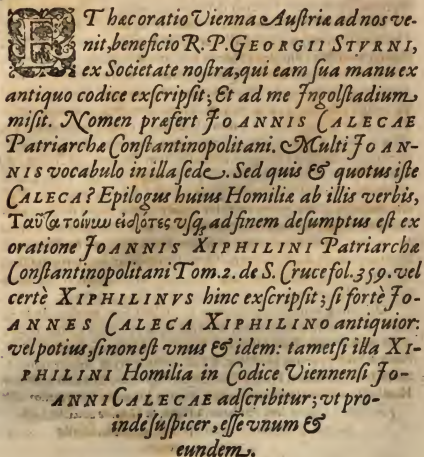 ET hæc oratio Vienna Austriæ ad nos ve-
nit, beneficio R. P. GEORGII STVRNI,
ex Societate nostra, qui eam sua manu ex
antiquo codice exscripsit; Et ad me Ingolstadium
misit. Nomen præfert JOANNIS CALECAE
Patriarchæ Constantinopolitani. Multi JOAN-
NIS vocabulo in illa sede. Sed quis & quotus iste
CALECA? Epilogus huius Homiliæ ab illis verbis,
Ταῦτα τοίνυν εἰδότες vsq; ad finem desumptus est ex
oratione JOANNIS XIPHILINI Patriarchæ
Constantinopolitani Tom. 2. de S. Cruce fol. 359. vel
certè XIPHILINVS hinc exscripsit; si fortè JO-
ANNES CALECA XIPHILINO antiquior:
vel potius, si non est vnus & idem: tametsi illa XI-
PHILINI Homilia in Codice Viennensi JO-
ANNI CALECAE adscribitur; vt pro-
inde suspicer, esse vnum &
eundem.